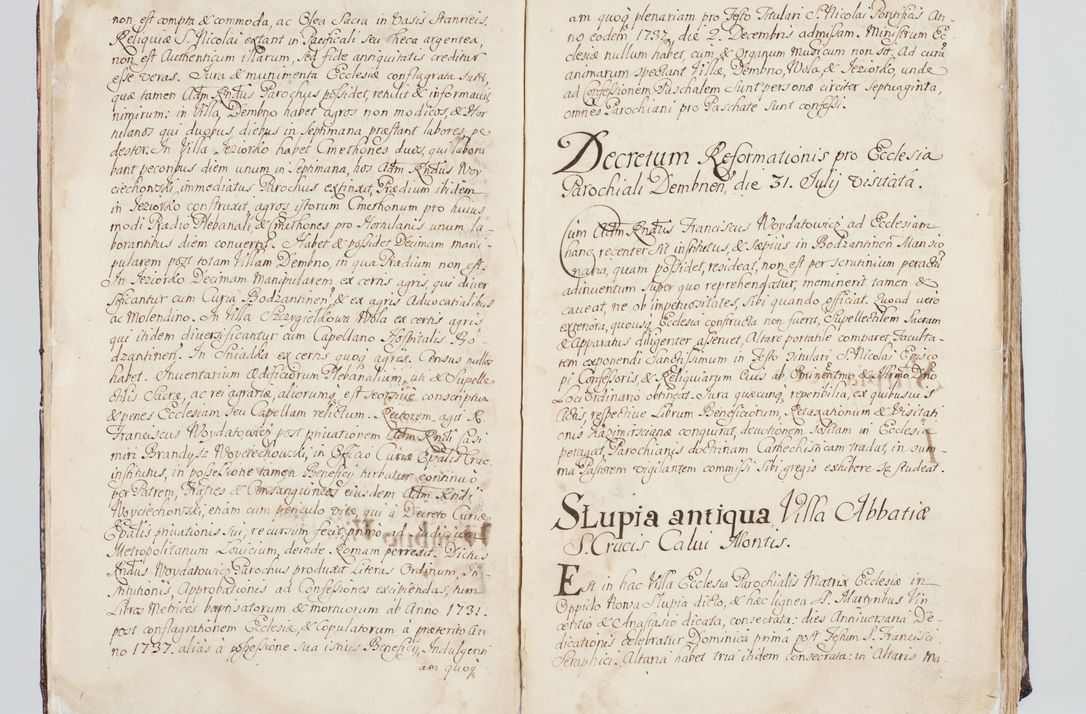 non est compta & commoda, ac Olea Sacra in Vasis Stanneis.
Reliquiæ S. Nicolai extant in Pacificali seu theca argentea
non est Authenticum illarum, sed fide antiquitatis creditur
esse veras. Jura & munimenta Ecclesiæ conflagrata sunt,
quæ tamen Adm Rndus Parochus possidet, retulit & informavit
nimirum: in Villa Dembno habet agros non modicos, & Hor-
tulanos qui duobus diebus in Septimana præstant labores pe-
destes. In Villa Jeziorko habet Cmethones duos, qui labora-
bant pecoribus diem unum in Septimana, hos Adm Rndus Woy-
ciechowski, immediatus Parochus extinxit, Prædium ibidem
in Jeziorko construxit, agros istorum Cmethonum pro huius-
modi Prædio Plebanali, & Cmethones pro Hortulanis unum la-
borantibus diem convertit. Habet & possidet Decimam mani-
pularem post totam Villam Dembno, in qua Prædium non est.
In Jeziorko Decimam Manipularem ex certis agris, qui diver-
sificantur cum Curia Bodzantinen & ex agris Advocatialibus
ac Molendino. In Villa Szczygiellowa Wola ex certis agris,
qui itidem diversificantur cum Capellano Hospitalis Bo-
dzantinen. In Sniadka ex certis quoq agris. Census nullos
habet. Inventarium ædificiorum Plebanalium, uti & Supelle-
ctilis Sacræ, ac rei agrariæ, aliorumq est seorsive conscriptum
& penes Ecclesiam seu Capellam relictum. Rectorem, agit R.
Franciscus Woydatowicz post privationem Adm Rndi Casi-
miri Brandysz Woyciechowski, in Officio Curiæ Epalis Crac.
institutus, in possessione tamen Beneficij turbatur continuo
per Patrem, Fratres & Consanguineos eiusdem Adm Rndi
Woyciechowski, etiam cum periculo vitæ, qui à Decreto Curiæ
Epalis privationis sui, recursum fecit, primo ad Judicium
Metropolitanum Lovicium, deinde Romam perrexit. Dictus
Rndus Woydatowicz Parochus produxit Literas Ordinum, In-
stitutionis Approbationis ad Confessiones excipiendas, tum
Libros Metrices baptisatorum & mortuorum ab Anno 1731.
post conflagrationem Ecclesiæ, & Copulatorum à præterito An-
no 1737. alias à possessione sua istius Beneficij, Indulgenti-
am quoq
am quoq plenariam pro Festo Titulari S. Nicolai Pontificis An-
no eodem 1737. die 2. Decembris admissam. Ministrum Ec-
clesiæ nullum habet, cum & Organum Musicum non sit. Ad curā
animarum spectant Villæ, Dembno, Wola, & Jeziorko, unde
ad Confessionem Paschalem sunt personæ circiter Septuaginta,
omnes Parochiani pro Paschate sunt confessi.
Decretum Reformationis pro Ecclesia
Parochiali Dembnen, die 31. Julij visitata.
Cum Adm Rndus Franciscus Woydatowicz ad Ecclesiam
hanc recenter sit institutus, & sæpius in Bodzantinen Mansio-
naria, quam possidet, resideat, non est per scrutinium peractū
adinventum super quo reprehendatur, meminerit tamen &
caveat, ne ob impetuositates, sibi quando officiat. Quoad vero
exteriora, quousq Ecclesia constructa non fuerit, Supellectilem Sacram
& Apparatus diligenter asservet, Altare portatile comparet, Faculta-
tem exponendi Sanctissimum in Festo Titulari S. Nicolai Episco-
pi Confessoris, & Reliquiarum Eius ab Eminentmo & Illrmo Dno
Loci Ordinario obtineat. Jura quæcunq reperibilia, ex quibusvis
Actis, respective Librum Beneficiorum, Retaxationum & Visitati-
onis Kazimirscianæ conquirat, devotionem solitam in Ecclesia
peragat, Parochianis doctrinam Cathechisticam tradat, in sum-
ma Pastorem vigilantem commissi sibi gregis exhibere se studeat.
Slupia antiqua Villa Abbatiæ
S. Crucis Calui Montis.
Est in hac Villa Ecclesia Parochialis Matrix Ecclesiæ in
Oppido Nova Slupia dicto, & hæc lignea SS. Martyribus Vin-
centio & Anastasio dicata, consecrata: dies Anniversaria De-
dicationis celebratur Dominica prima post Festum S. Francisci
Seraphici. Altaria habet tria itidem consecrata: in Altaris Ma-